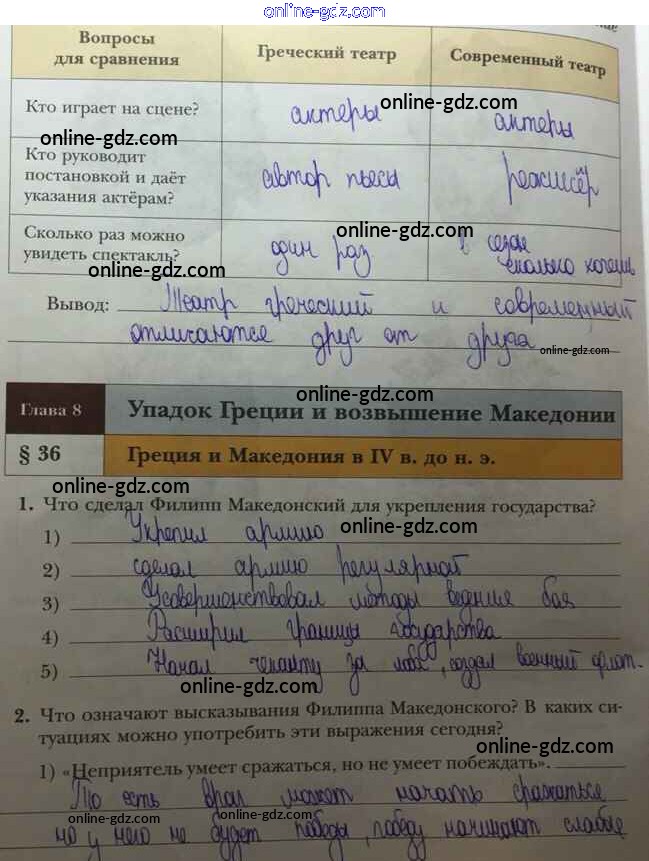 online-gdz.com
Вопросы для сравнения
Греческий театр
Современный театр
Кто играет на сцене?
актеры
online-gdz.com
актеры
online-gdz.com
Кто руководит постановкой и даёт указания актёрам?
автор пьесы
режиссёр
online-gdz.com
Сколько раз можно увидеть спектакль?
один раз
сколько хочешь
online-gdz.com
Вывод: Театр греческий и современный
отличаются друг от друга
online-gdz.com
online-gdz.com
Глава 8 Упадок Греции и возвышение Македонии
§ 36 Греция и Македония в IV в. до н. э.
online-gdz.com
1. Что сделал Филипп Македонский для укрепления государства?
1) Укрепил армию
online-gdz.com
2) сделал армию регулярной
3) Усовершонствовал методы ведения боя
online-gdz.com
4) Расширил границы государства
5) Начал чеканту за, создал военный флот.
online-gdz.com
2. Что означают высказывания Филиппа Македонского? В каких си-
туациях можно употребить эти выражения сегодня?
online-gdz.com
1) «Неприятель умеет сражаться, но не умеет побеждать».
online-gdz.com
То есть враг может начать сражаться
но у него не будет победы, победу начинают слабые
online-gdz.com